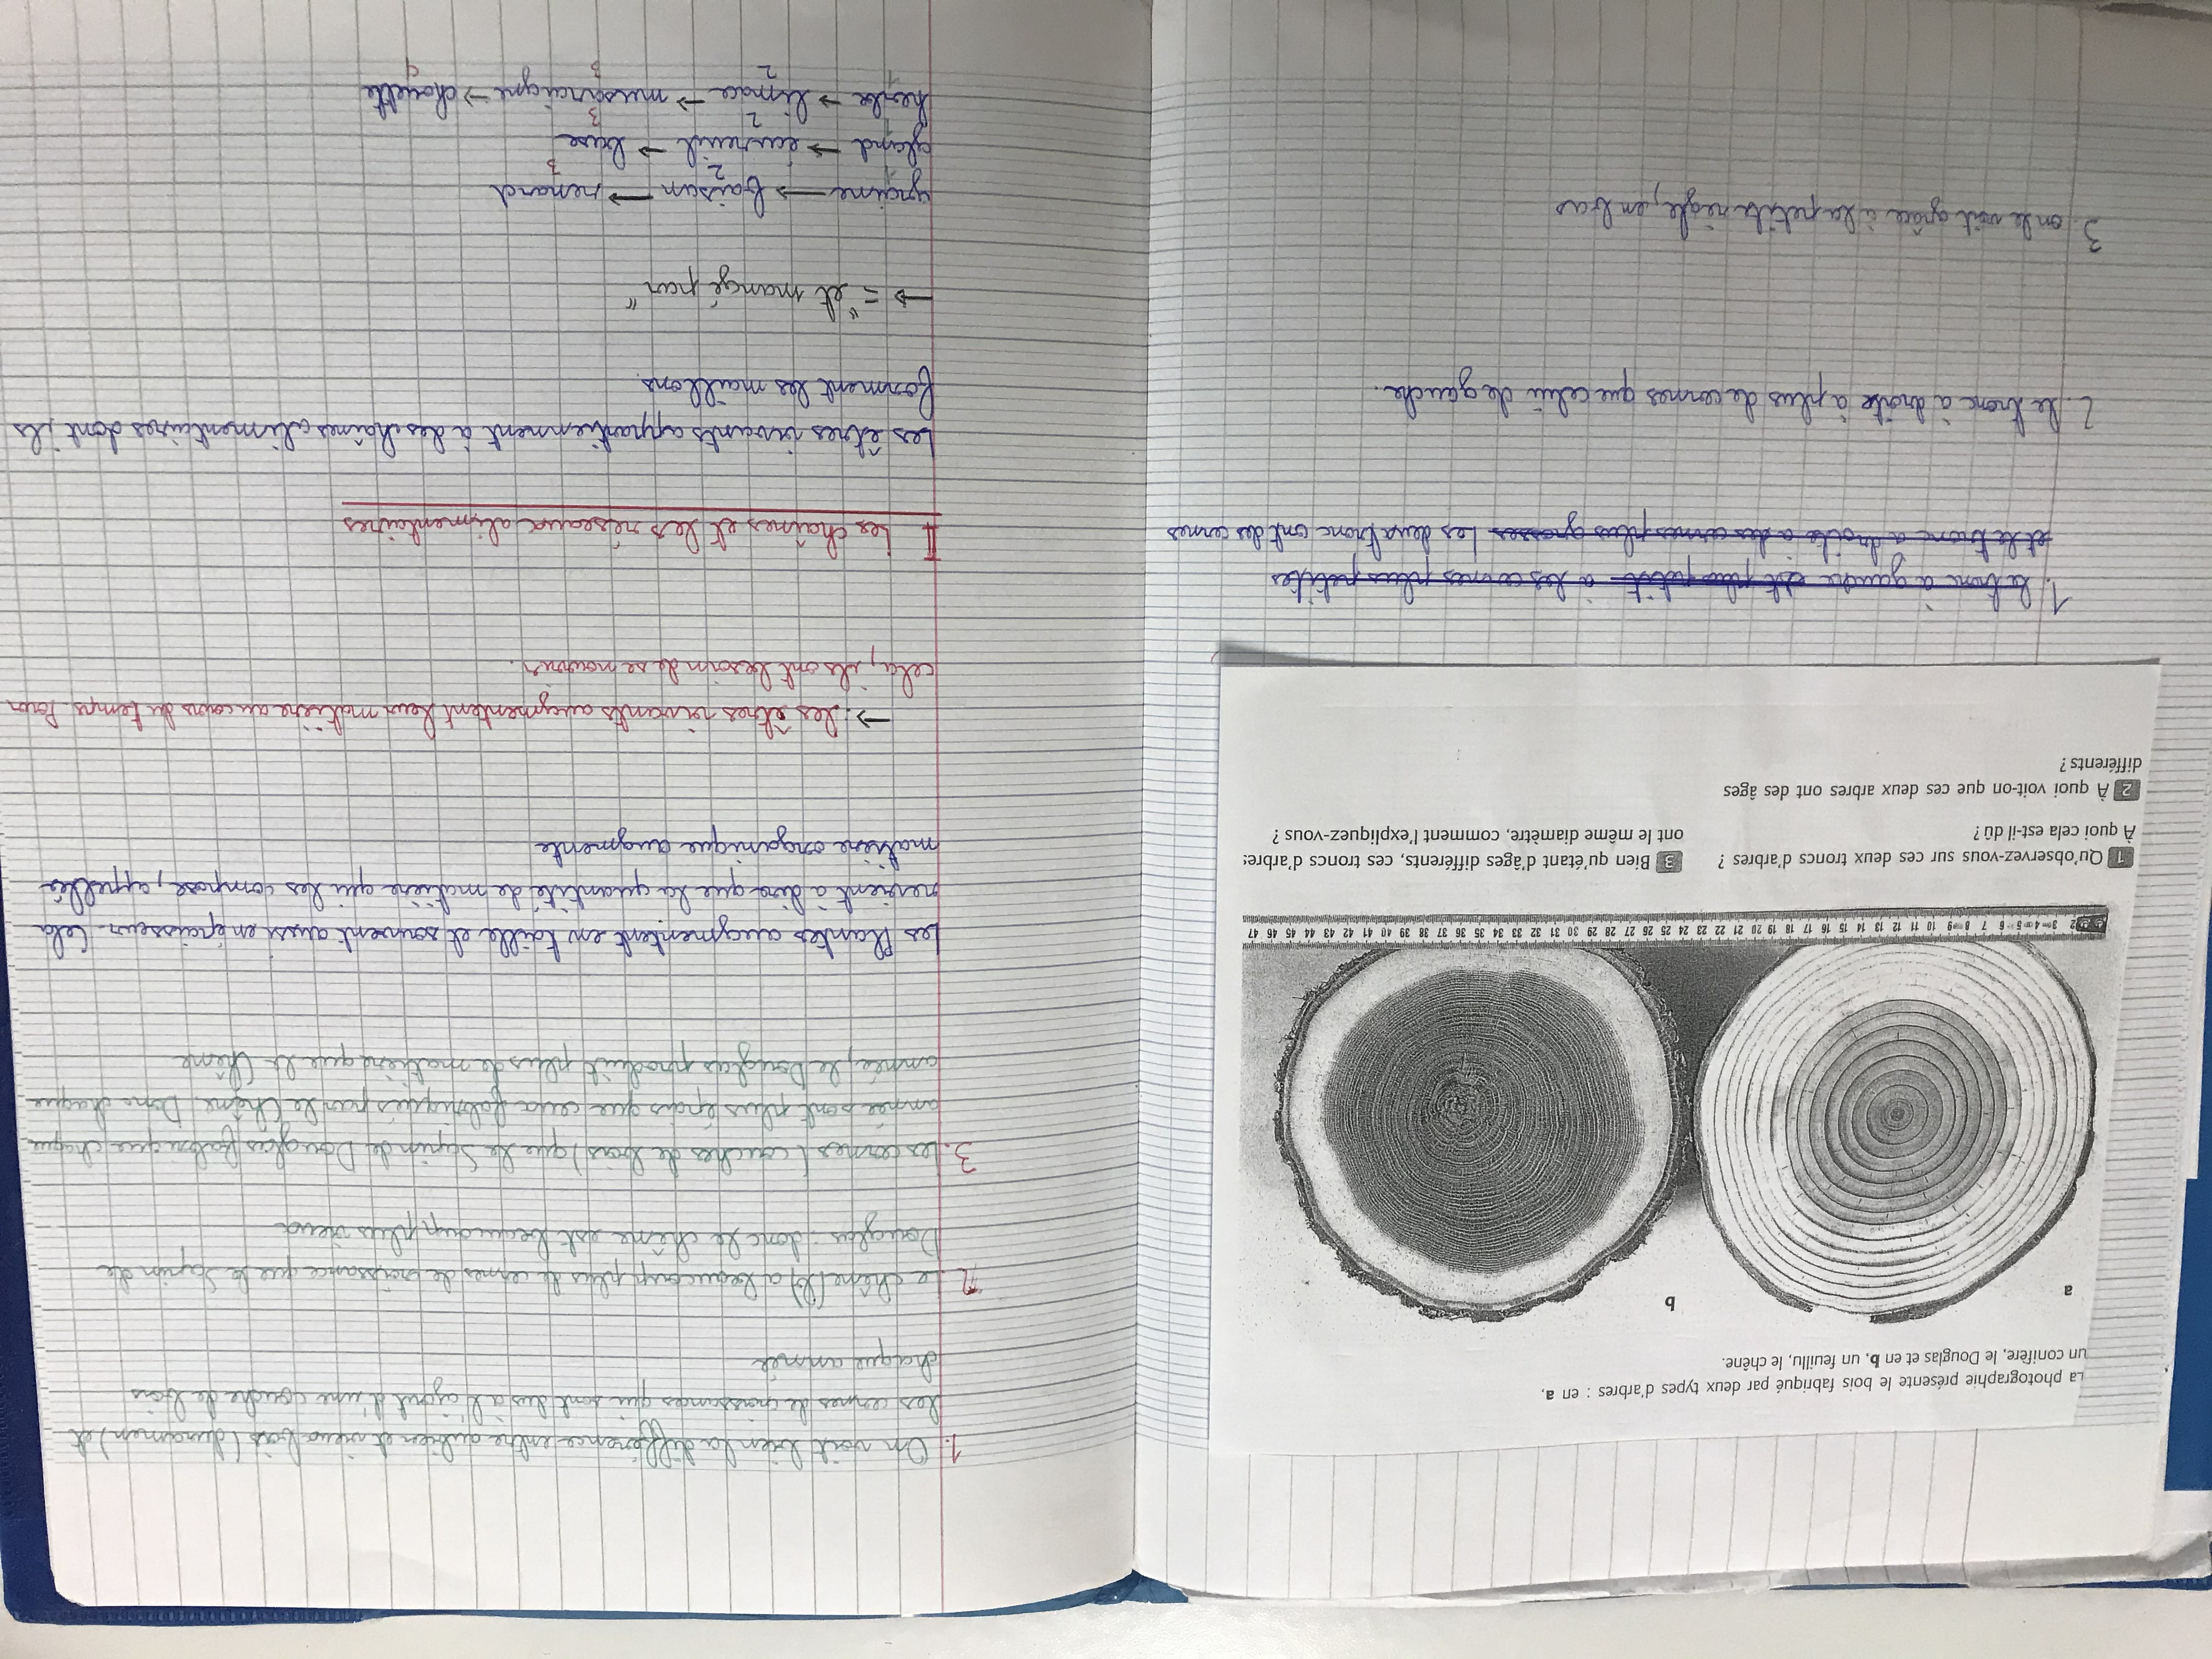 La photographie présente le bois fabriqué par deux types d'arbres : en a,
un conifère, le Douglas et en b, un feuillu, le chêne.
a
b
2 3 4 5 6 7 8 9 10 11 12 13 14 15 16 17 18 19 20 21 22 23 24 25 26 27 28 29 30 31 32 33 34 35 36 37 38 39 40 41 42 43 44 45 46 47
1 Qu'observez-vous sur ces deux troncs d'arbres ?
À quoi cela est-il dû ?
2 À quoi voit-on que ces deux arbres ont des âges
différents ?
3 Bien qu'étant d'âges différents, ces troncs d'arbres
ont le même diamètre, comment l'expliquez-vous ?
1. le tronc à gauche est plus petit à les cernes plus petites
et le tronc a droite à des cernes plus grosses Les deux tronc ont des cernes
2. le tronc à droite à plus de cernes que celui de gauche.
3. on le voit grâce à la petite règle, en bas
1. On voit bien la différence entre aubier et vieux bois (duramen) et
les cernes de croissances qui sont dus à l'ajout d'une couche de bois
chaque année
2 Le chêne (b) a beaucoup plus de cernes de croissance que le Sapin de
Douglas : donc le chêne est beaucoup plus vieux
3. Les cernes (couches de bois) que le Sapin de Douglas fabrique chaque
année sont plus épais que ceux fabriqués par le Chêne. Donc chaque
année, le Douglas produit plus de matière que le Chêne
Les Plantes augmentent en taille et souvent aussi en épaisseur. Cela
revient à dire que la quantité de matière qui les compose, appellée
matière organique augmente
→ les êtres vivants augmentent leur matière au cours du temps. Pour
cela, ils ont besoin de se nourrir.
II Les chaînes et les réseaux alimentaires
Les êtres vivants appartiennent à des chaînes alimentaires dont ils
forment les maillons.
→ = "et mangé par"
graine → faisan → renard
1 2 3
gland → écureuil → buse
2 3
herbe → limace → musaraigne → chouette
1 2 3 4